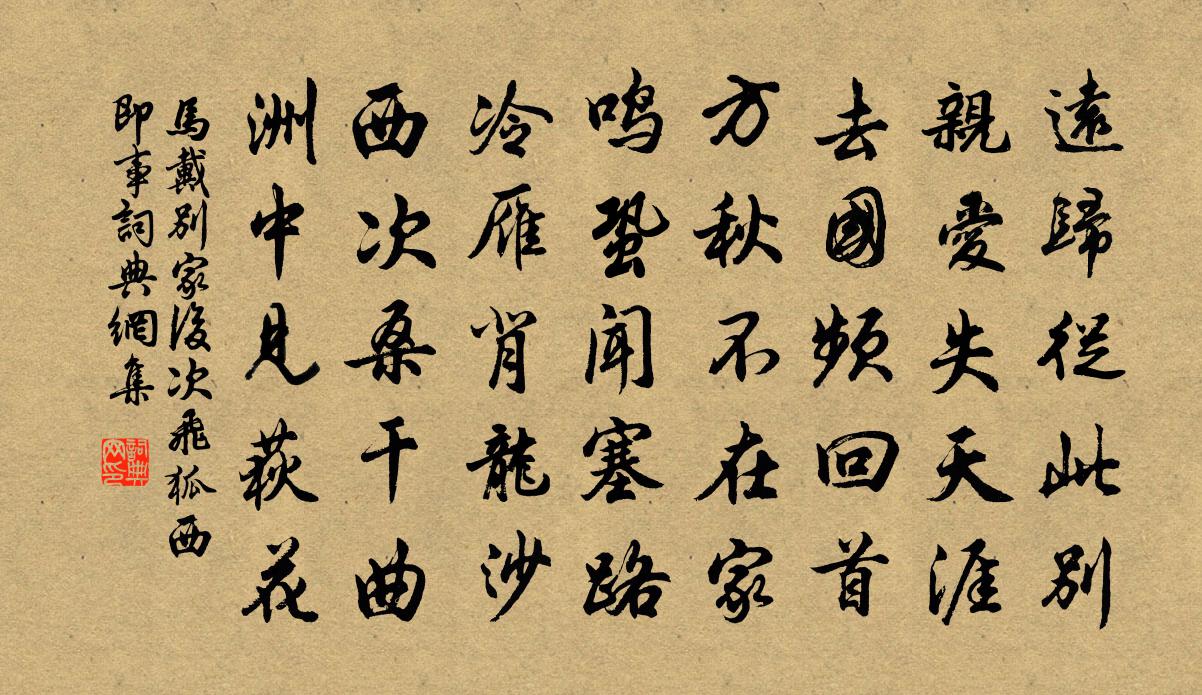 遠歸從此別
親愛失天涯
去國頻回首
方秋不在家
鳴蛩聞塞路
冷雁背龍沙
西次桑干曲
洲中見荻花
馬戴別家後次飛狐西
即事詞典網集
詞典网印